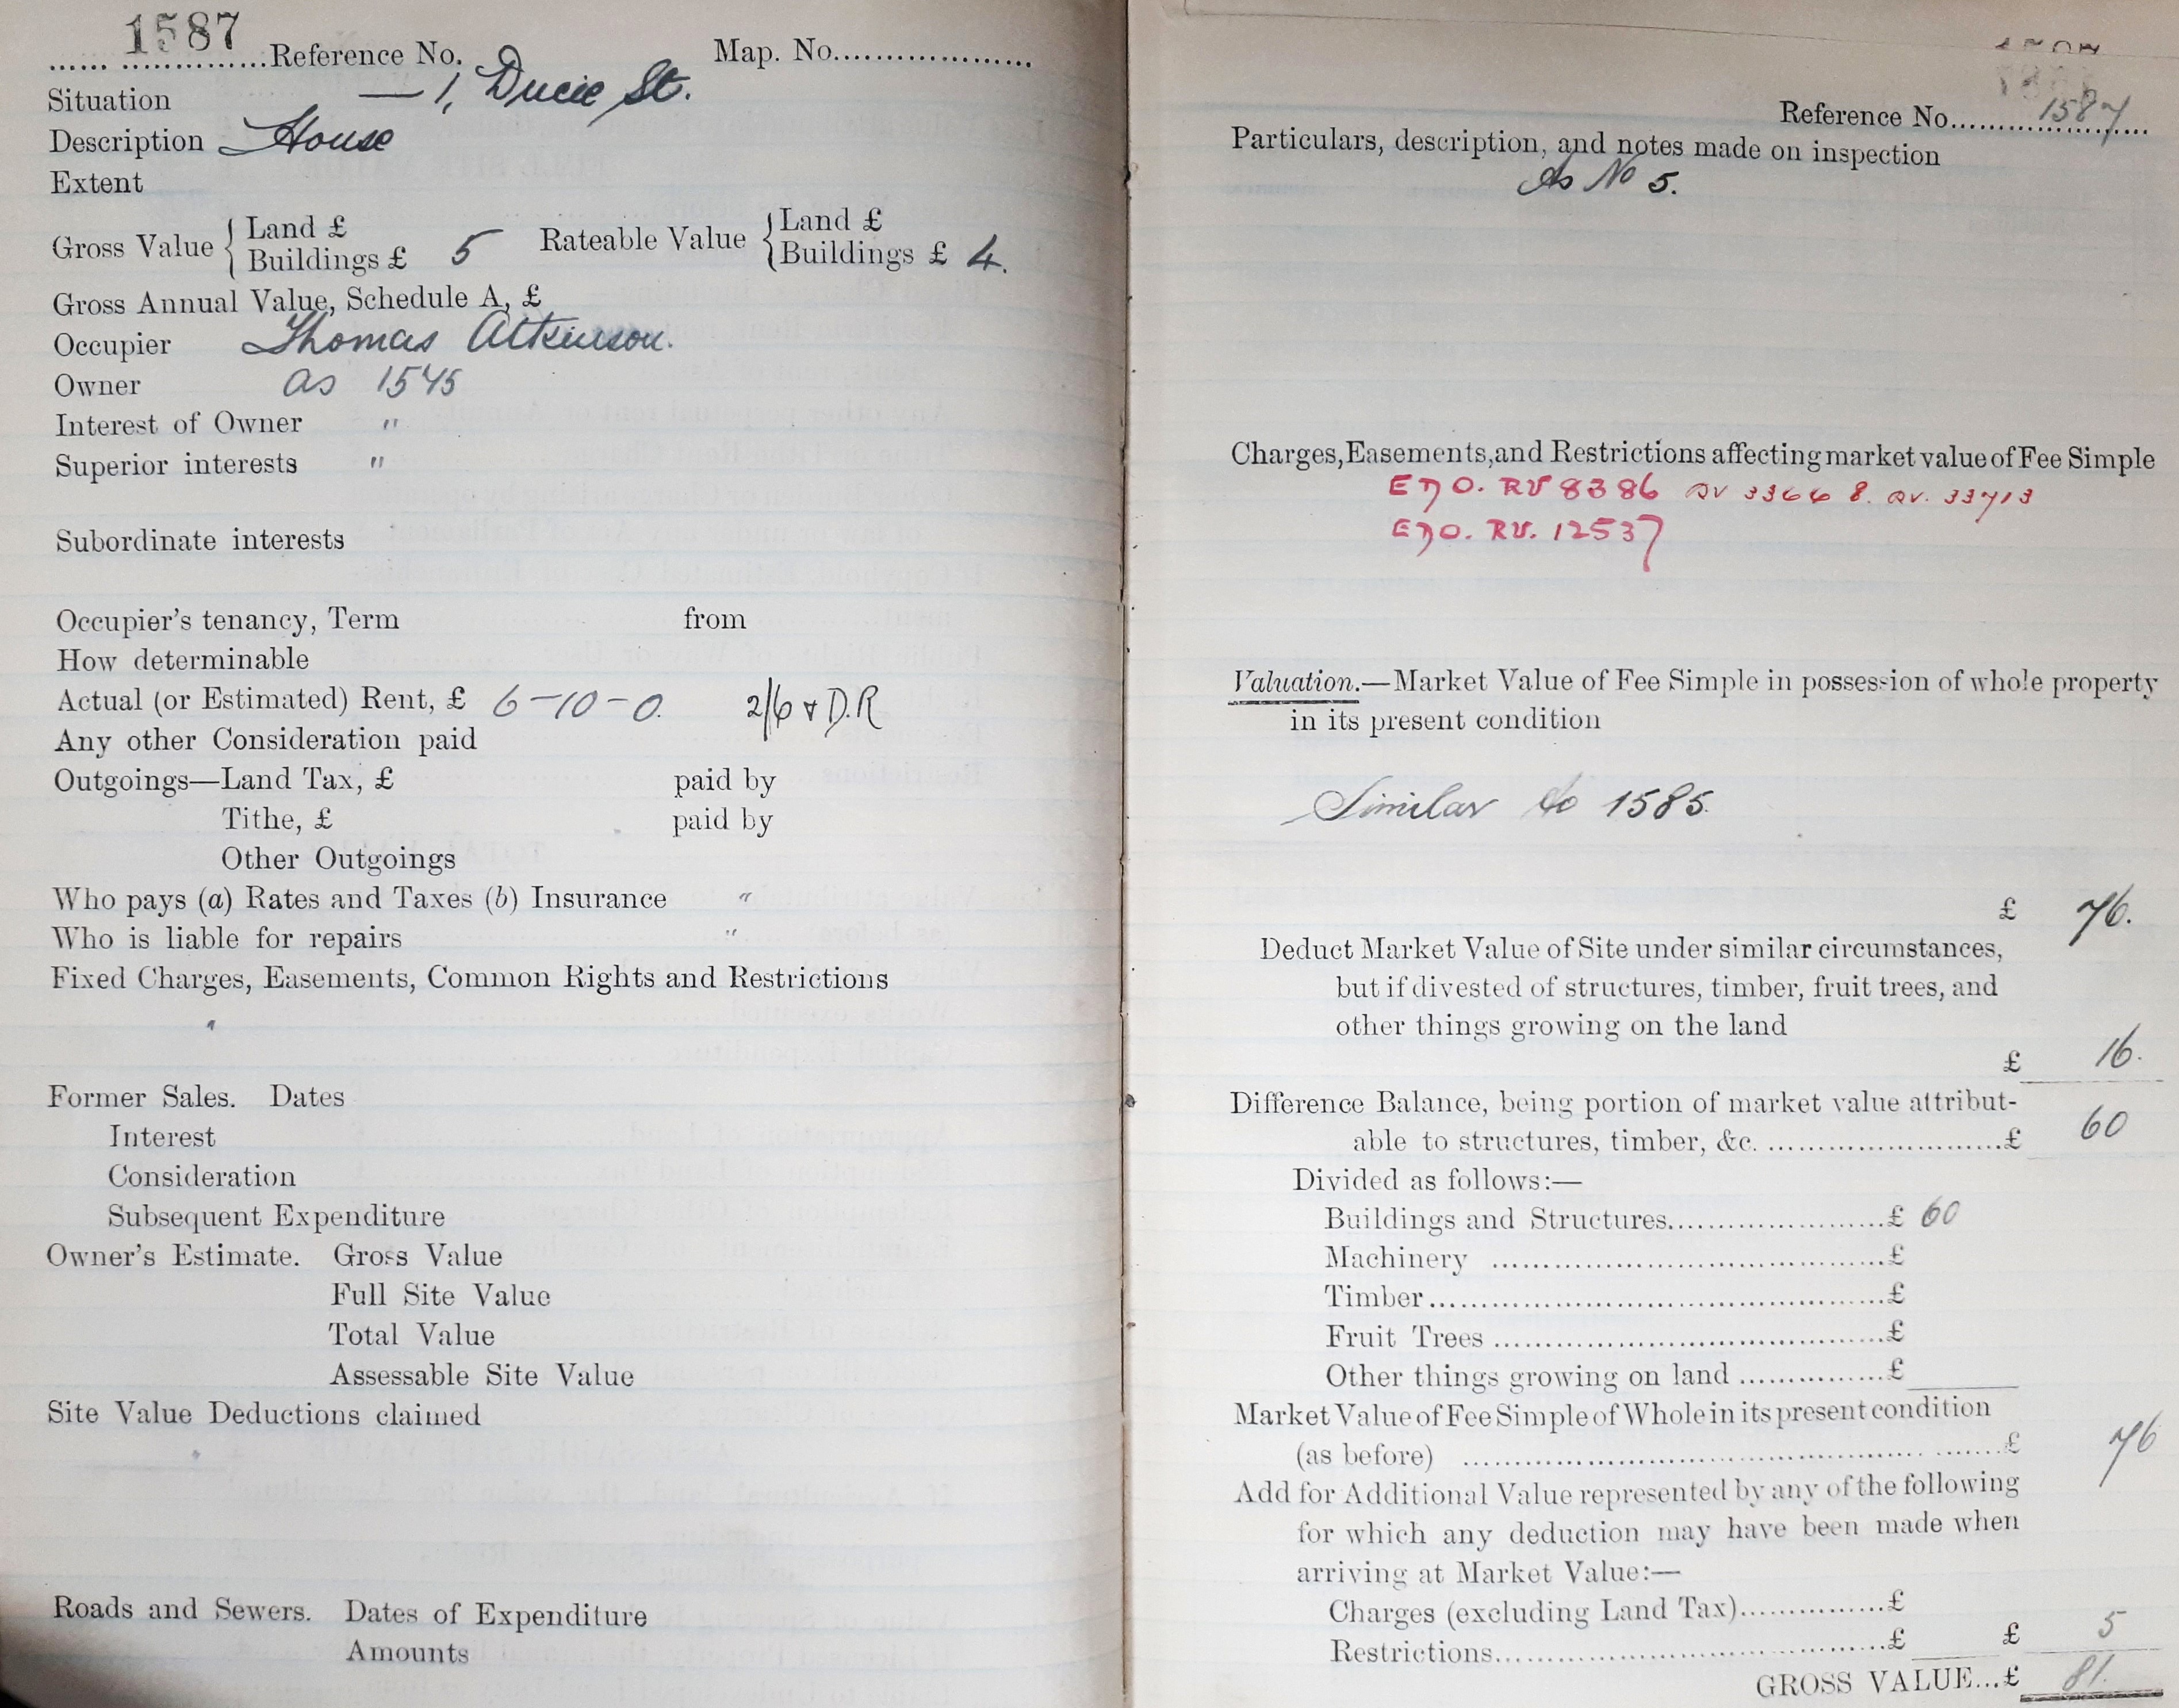 1587
Reference No. Map. No.
Situation — 1, Ducie St.
Description House
Extent
Gross Value { Land £
Buildings £ 5 Rateable Value { Land £
Buildings £ 4.
Gross Annual Value, Schedule A, £
Occupier Thomas Atkinson.
Owner as 1545
Interest of Owner "
Superior interests "
Subordinate interests
Occupier's tenancy, Term from
How determinable
Actual (or Estimated) Rent, £ 6-10-0. 2/6 & D.R
Any other Consideration paid
Outgoings—Land Tax, £ paid by
Tithe, £ paid by
Other Outgoings
Who pays (a) Rates and Taxes (b) Insurance "
Who is liable for repairs "
Fixed Charges, Easements, Common Rights and Restrictions
"
Former Sales. Dates
Interest
Consideration
Subsequent Expenditure
Owner's Estimate. Gross Value
Full Site Value
Total Value
Assessable Site Value
Site Value Deductions claimed
Roads and Sewers. Dates of Expenditure
Amounts
Reference No. 1587
Particulars, description, and notes made on inspection
As No 5.
Charges, Easements, and Restrictions affecting market value of Fee Simple
RV 8386
RV. 12537
Valuation.—Market Value of Fee Simple in possession of whole property
in its present condition
Similar to 1585.
£ 76.
Deduct Market Value of Site under similar circumstances,
but if divested of structures, timber, fruit trees, and
other things growing on the land
£ 16.
Difference Balance, being portion of market value attribut-
able to structures, timber, &c. £ 60
Divided as follows:—
Buildings and Structures £ 60
Machinery £
Timber £
Fruit Trees £
Other things growing on land £
Market Value of Fee Simple of Whole in its present condition
(as before) £ 76
Add for Additional Value represented by any of the following
for which any deduction may have been made when
arriving at Market Value:—
Charges (excluding Land Tax) £
Restrictions £ £ 5
GROSS VALUE...£ 81.